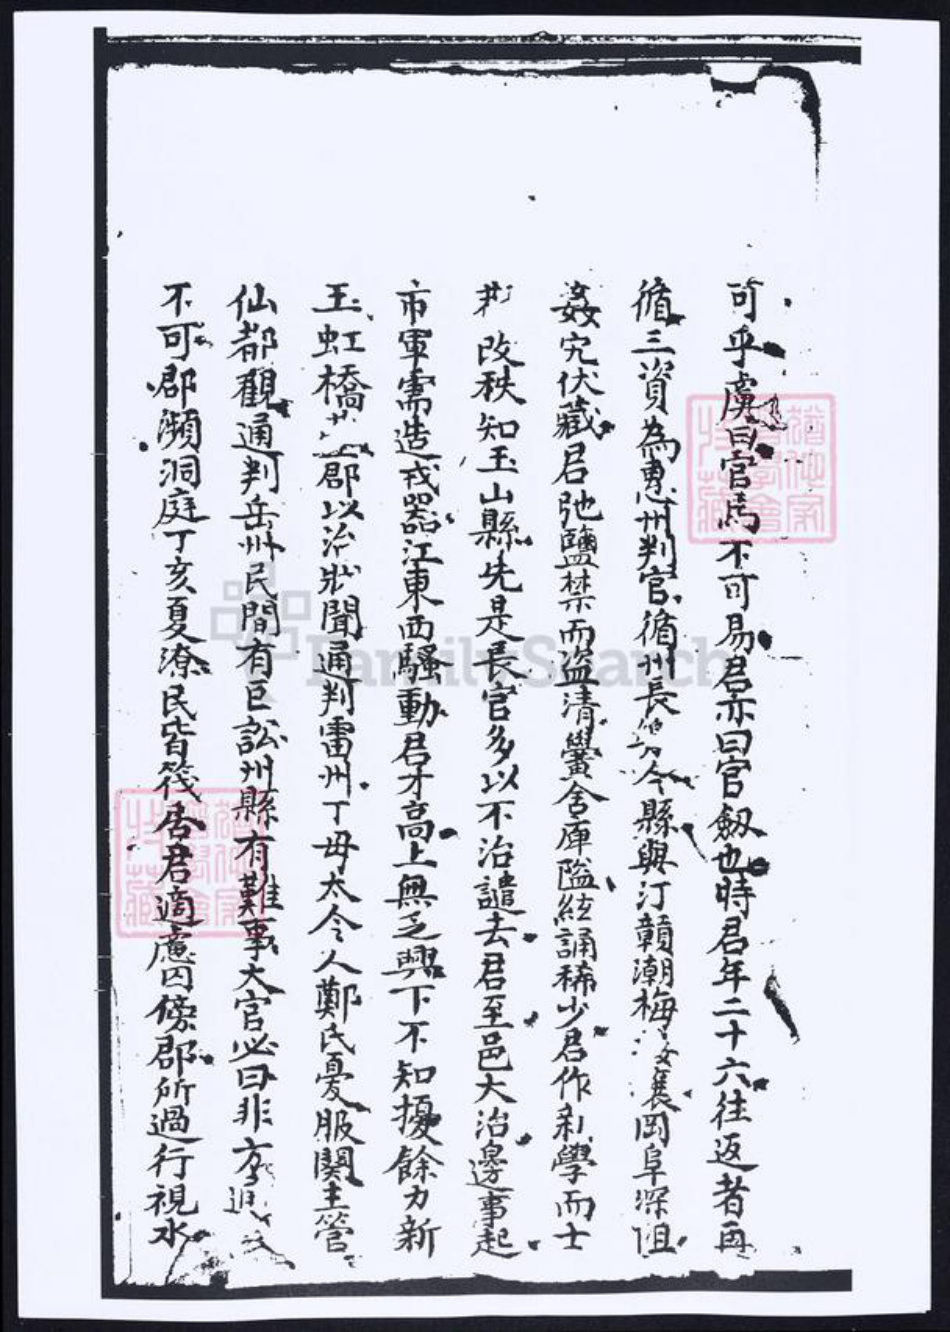 可乎虜曰官馬不可易君亦曰官劔也時君年二十六往返者再
循三資為惠州判官循州長樂令縣與汀贛潮梅接襄岡阜深阻
姦宄伏藏君弛鹽禁而盜清黌舍庫隘絃誦稀少君作新學而士
改秩知玉山縣先是長官多以不治譴去君至邑大治邊事起
市軍需造戎器江東西騷動君才高上無乏興下不知擾餘力新
玉虹橋 郡以治狀聞通判雷州丁母太令人鄭氏憂服闋主管
仙都觀通判岳州民間有巨訟州縣有難事大官必曰非方
不可郡瀕洞庭丁亥夏潦民皆筏居君適慮囚傍郡所過行視水
FamilySearch